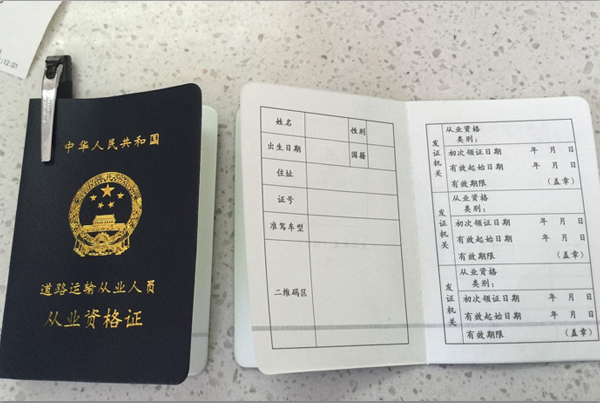 :12:01
中华人民共和国
道路运输从业人员
从业资格证
姓名 性别
出生日期 国籍
住址
证号
准驾车型
二维码区
发证机关
从业资格类别：
初次领证日期 年 月 日
有效起始日期 年 月 日
有效期限 （盖章）
发证机关
从业资格类别：
初次领证日期 年 月 日
有效起始日期 年 月 日
有效期限 （盖章）
发证机关
从业资格类别：
初次领证日期 年 月 日
有效起始日期 年 月 日
有效期限 （盖章）